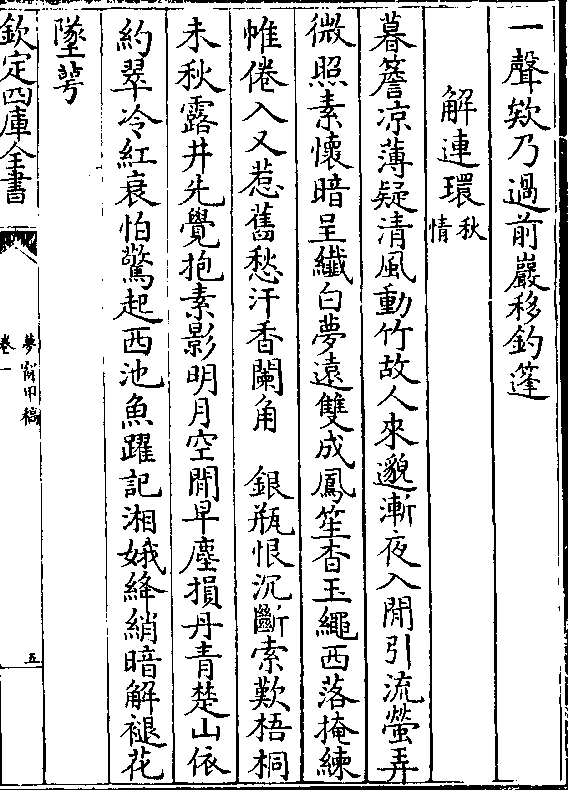 一聲欸乃過前巖移釣篷
解連環秋情
暮簷凉薄疑清風動竹故人來邈漸夜入閒引流螢弄
微照素懷暗呈纖白夢遠雙成鳳笙杳玉繩西落掩練
帷倦入又惹舊愁汗香闌角　銀瓶恨沉斷索歎梧桐
未秋露井先覺抱素影明月空閒早塵損丹青楚山依
約翠冷紅衰怕驚起西池魚躍記湘娥絳綃暗解褪花
墜萼
欽定四庫全書
夢窗甲稿
卷一
五